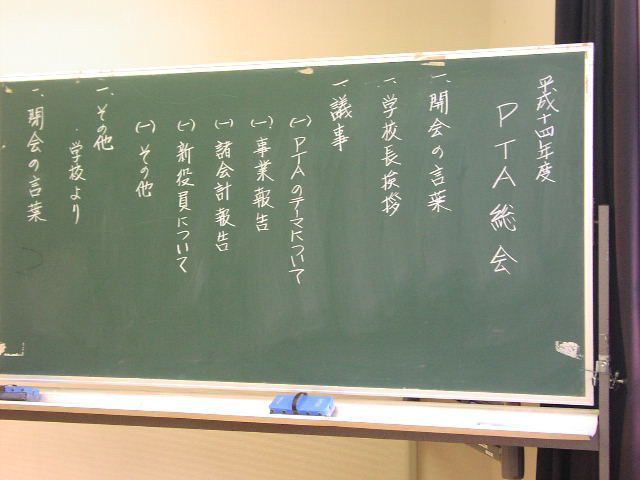 平成十四年度
PTA総会
一、開会の言葉
一、学校長挨拶
一、議事
(一)PTAのテーマについて
(一)事業報告
(一)諸会計報告
(一)新役員について
(一)その他
一、その他
・学校より
一、閉会の言葉